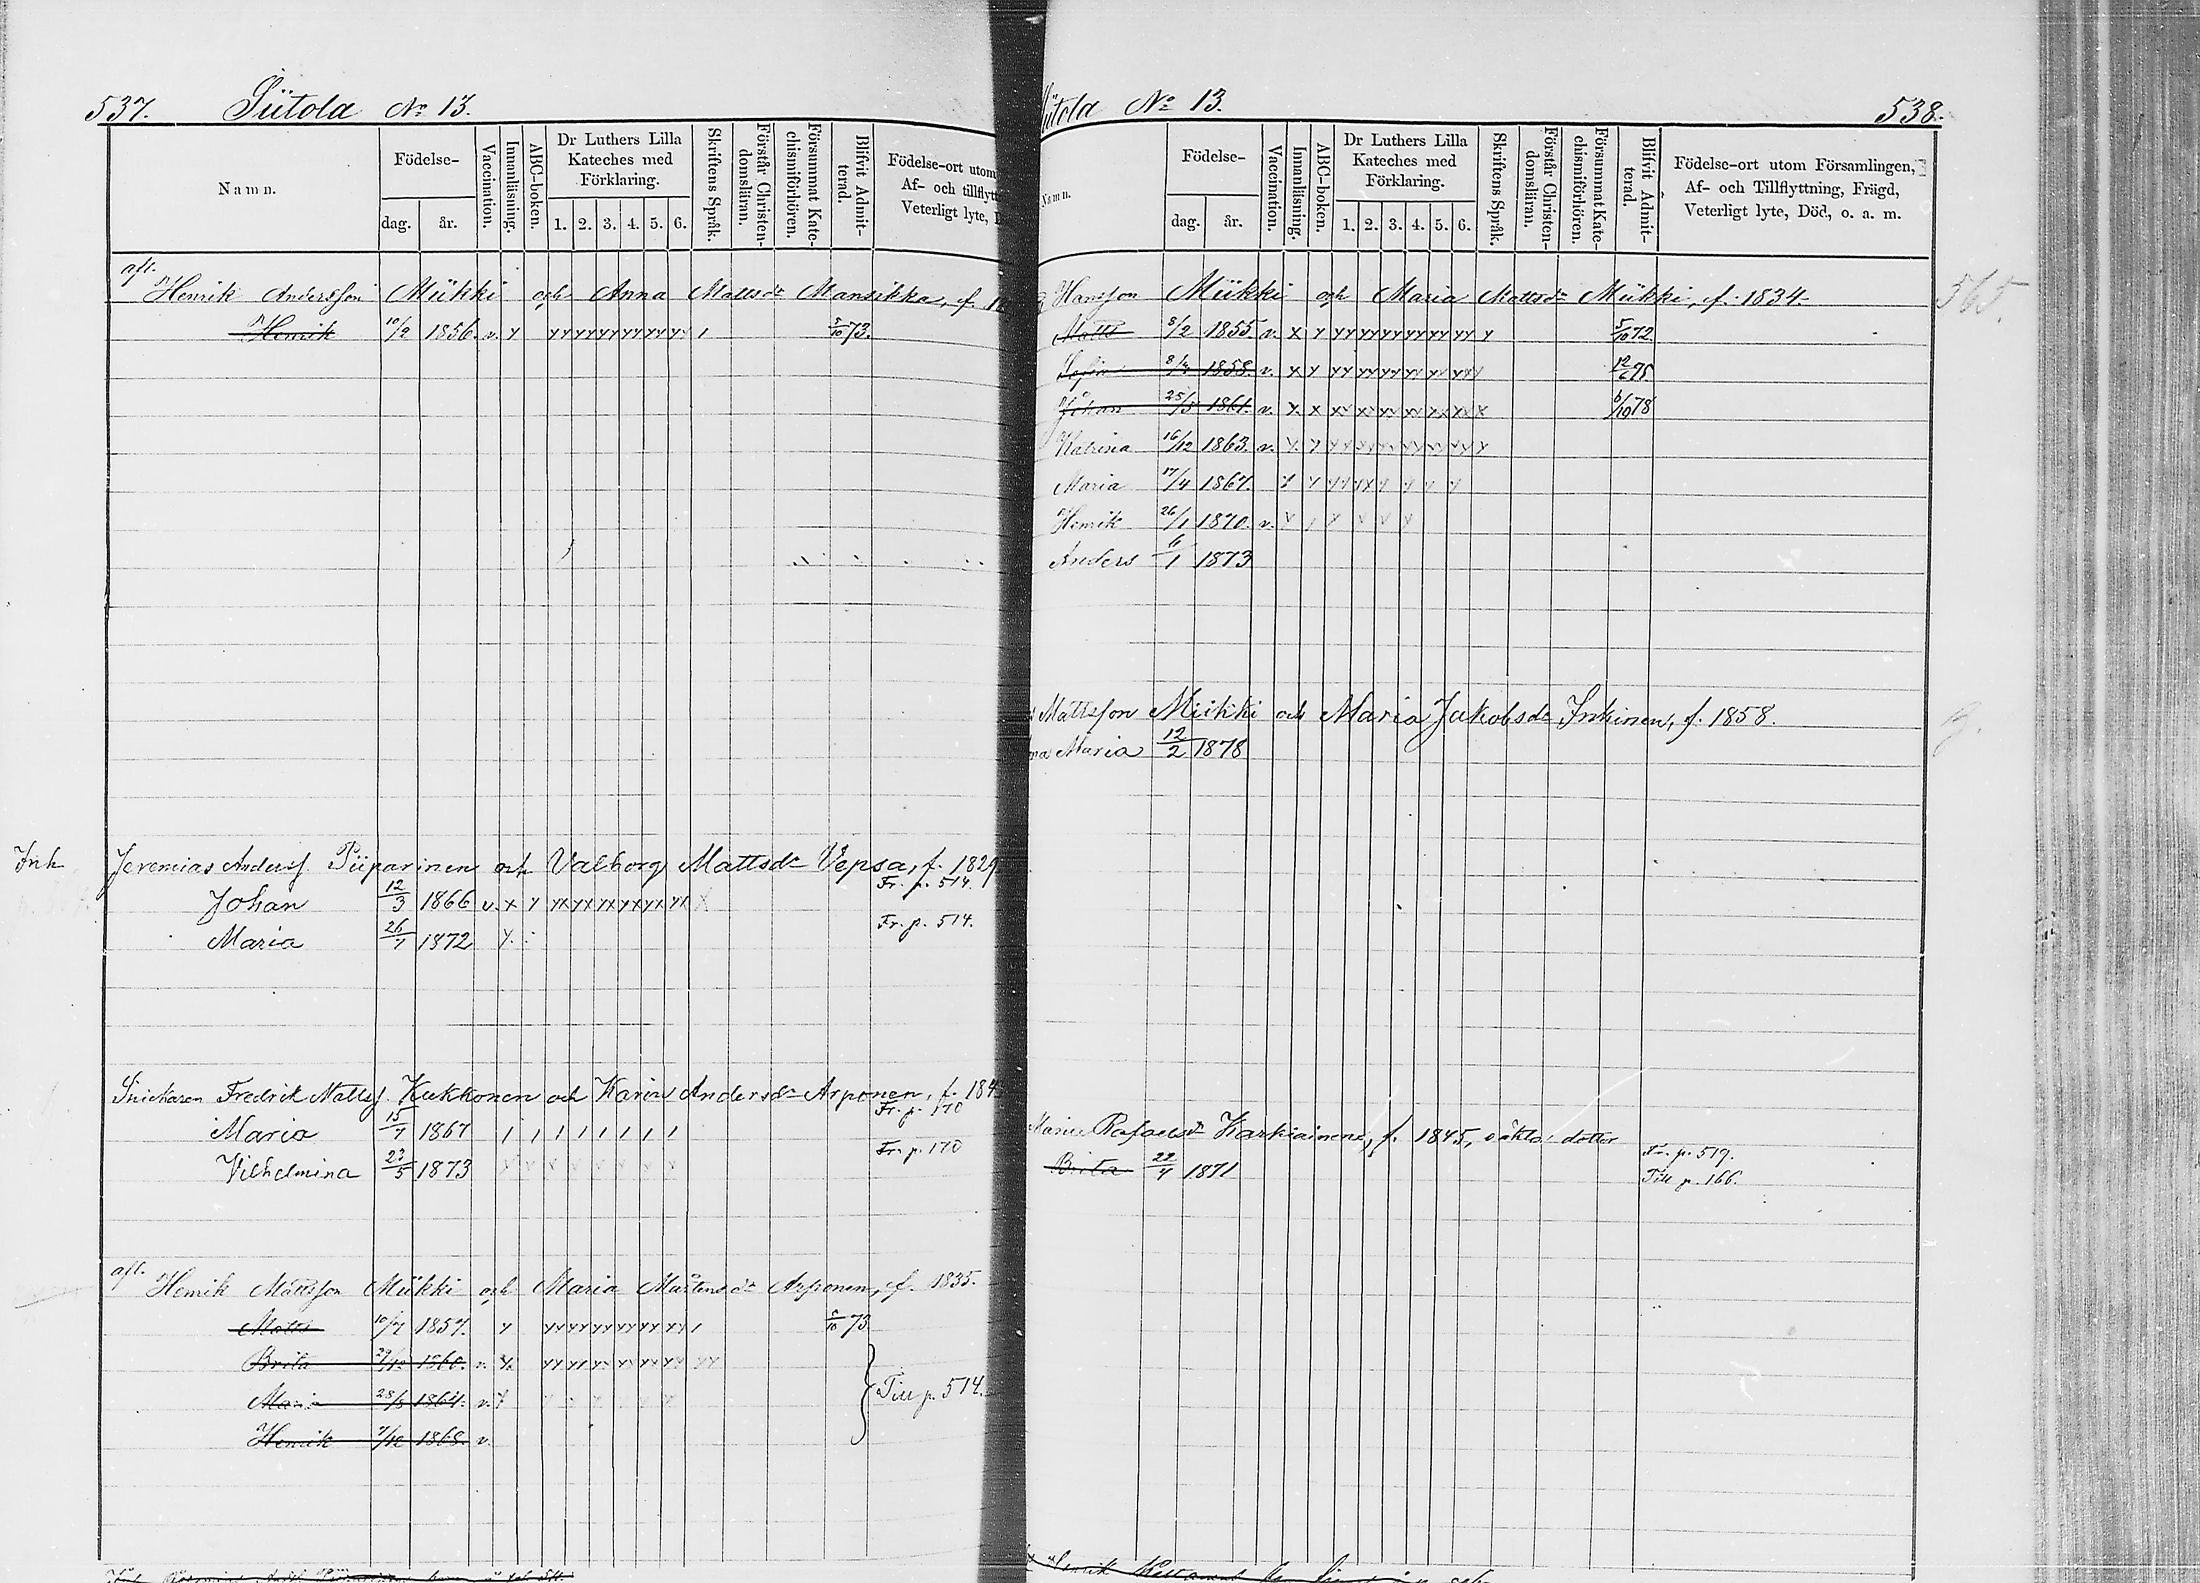 537. Siitola No 13.
Namn.
Födelse-
dag. år.
Vaccination.
Innanläsning.
ABC-boken.
Dr Luthers Lilla
Kateches med
Förklaring.
1. 2. 3. 4. 5. 6.
Skriftens Språk.
Förstår Christen-
domsläran.
Försummat Kate-
chismiförhören.
Blifvit Admit-
terad.
Födelse-ort utom
Af- och tillflytt
Veterligt lyte,
aft.
Henrik Andersson Miikki och Anna Mattsdr Mansikka, f.
Henrik 10/2 1856. v. x xx xx xx xx xx xx / 5/10 73.
Inh Jeremias Anderss. Piiparinen och Valborg Mattsdr Vepsa, f. 1829
Fr. p. 514.
Johan 12/3 1866 v. x x xx xx xx xx xx xx x
Fr. p. 514.
Maria 26/7 1872 x
Snickaren Fredrik Mattss. Kukkonen och Karin Andersdr Arponen, f. 184
Fr. p. 170
Maria 15/7 1867 / / / / / / / /
Fr. p. 170
Vilhelmina 23/5 1873 x x x x x x x x
aft. Henrik Mattsson Miikki och Maria Mårtensdr Arponen, f. 1835.
Matts 10/7 1857. x xx xx xx xx xx xx / 5/10 73
Brita 29/12 1860. v. x xx xx xx xx xx xx xx
Maria 28/5 1864. v. x
Till p. 514.
Henrik 7/12 1868. v.
Siitola No 13. 538.
Namn.
Födelse-
dag. år.
Vaccination.
Innanläsning.
ABC-boken.
Dr Luthers Lilla
Kateches med
Förklaring.
1. 2. 3. 4. 5. 6.
Skriftens Språk.
Förstår Christen-
domsläran.
Försummat Kate-
chismiförhören.
Blifvit Admit-
terad.
Födelse-ort utom Församlingen,
Af- och Tillflyttning, Frägd,
Veterligt lyte, Död, o. a. m.
Hansson Miikki och Maria Mattsdr Miikki, f. 1834 565.
Matts 8/2 1855. v. x x xx xx xx xx xx xx x 5/10 72.
Sofia 8/4 1858. v. x x xx xx xx xx xx xxx 12/6 75
Johan 25/5 1861. v. x x xx xx xx xx xx xx x 6/10 78
Katrina 16/12 1863. v. x x xx xx xx xx xx xx x
Maria 17/4 1867. x x xx xx x x x x
Henrik 26/1 1870. v. x / x x x x
Anders 6/1 1873
Mattsson Miikki och Maria Jakobsdr Inkinen, f. 1858.
Maria 12/2 1878
Maria Rafaelsdr Karkiainen, f. 1845, oäkta dotter
Fr. p. 519.
Brita 22/4 1871
Till p. 166.